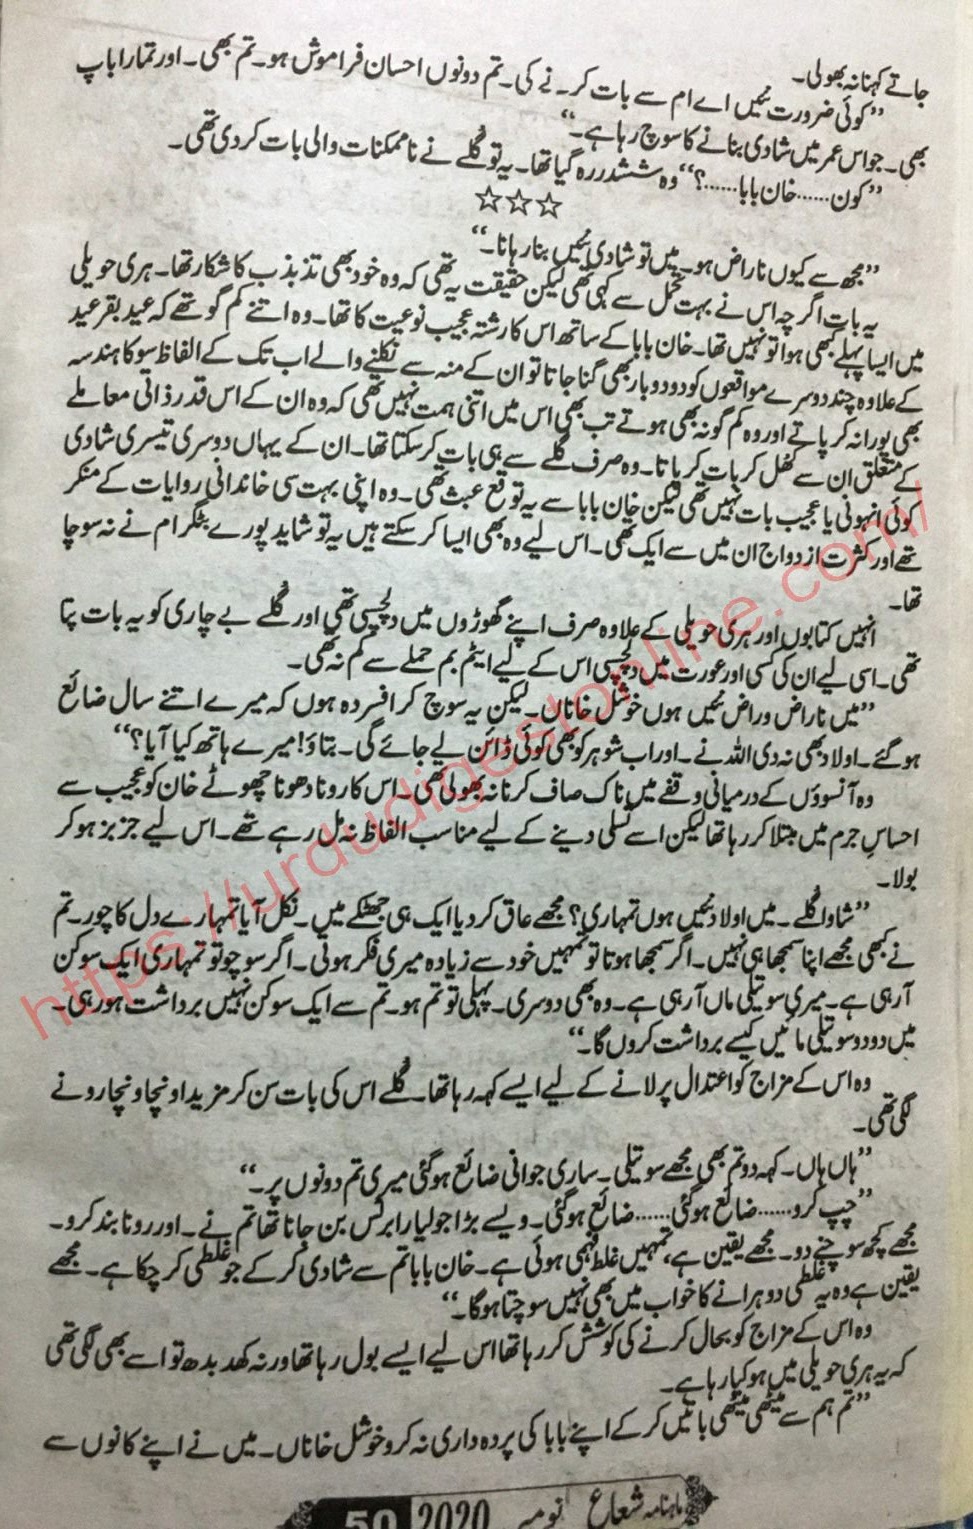 جاتے کہنا نہ بھولی۔
”کوئی ضرورت نئیں اے ام سے بات کر۔ نے کی۔ تم دونوں احسان فراموش ہو۔ تم بھی۔ اور تمارا باپ
بھی۔ جو اس عمر میں شادی بنانے کا سوچ رہا ہے۔“
”کون...... خان بابا......؟“ وہ ششدر رہ گیا تھا۔ یہ تو گلے نے ناممکنات والی بات کر دی تھی۔
☆☆☆
”مجھ سے کیوں ناراض ہو۔ میں تو شادی نئیں بنا رہا نا۔“
یہ بات اگرچہ اس نے بہت تحمل سے کہی تھی لیکن حقیقت یہ تھی کہ وہ خود بھی تذبذب کا شکار تھا۔ ہری حویلی
میں ایسا پہلے کبھی ہوا تو نہیں تھا۔ خان بابا کے ساتھ اس کا رشتہ عجیب نوعیت کا تھا۔ وہ اتنے کم گو تھے کہ عید بقر عید
کے علاوہ چند دوسرے مواقعوں کو دو دو بار بھی گنا جاتا تو ان کے منہ سے نکلنے والے اب تک کے الفاظ سو کا ہندسہ
بھی پورا نہ کر پاتے اور وہ کم گو نہ بھی ہوتے تب بھی اس میں اتنی ہمت نہیں تھی کہ وہ ان کے اس قدر ذاتی معاملے
کے متعلق ان سے کھل کر بات کر پاتا۔ وہ صرف گلے سے ہی بات کر سکتا تھا۔ ان کے یہاں دوسری تیسری شادی
کوئی انہونی یا عجیب بات نہیں تھی لیکن خان بابا سے یہ توقع عبث تھی۔ وہ اپنی بہت سی خاندانی روایات کے منکر
تھے اور کثرت ازدواج ان میں سے ایک تھی۔ اس لیے وہ بھی ایسا کر سکتے ہیں یہ تو شاید پورے بٹگرام نے نہ سوچا
تھا۔
انہیں کتابوں اور ہری حویلی کے علاوہ صرف اپنے گھوڑوں میں دلچسپی تھی اور گلے بے چاری کو یہ بات پتا
تھی۔ اسی لیے ان کی کسی اور عورت میں دلچسپی اس کے لیے ایٹم بم حملے سے کم نہ تھی۔
”میں ناراض وراض نئیں ہوں خوشل خاناں۔ لیکن یہ سوچ کر افسردہ ہوں کہ میرے اتنے سال ضائع
ہو گئے۔ اولاد بھی نہ دی اللہ نے۔ اور اب شوہر کو بھی کوئی ڈائن لے جائے گی۔ بتاؤ! میرے ہاتھ کیا آیا؟“
وہ آنسوؤں کے درمیانی وقفے میں ناک صاف کرنا نہ بھولی تھی۔ اس کا رونا دھونا چھوٹے خان کو عجیب سے
احساس جرم میں مبتلا کر رہا تھا لیکن اسے تسلی دینے کے لیے مناسب الفاظ نہ مل رہے تھے۔ اس لیے جزبز ہو کر
بولا۔
”شاوا گلے۔ میں اولاد نئیں ہوں تمہاری؟ مجھے عاق کر دیا ایک ہی جھٹکے میں۔ نکل آیا تمہارے دل کا چور۔ تم
نے کبھی مجھے اپنا سمجھا ہی نہیں۔ اگر سمجھا ہوتا تو تمہیں خود سے زیادہ میری فکر ہوتی۔ اگر سوچو تو تمہاری ایک سوکن
آ رہی ہے۔ میری سوتیلی ماں آ رہی ہے۔ وہ بھی دوسری۔ پہلی تو تم ہو۔ تم سے ایک سوکن نہیں برداشت ہو رہی۔
میں دو دو سوتیلی مائیں کیسے برداشت کروں گا۔“
وہ اس کے مزاج کو اعتدال پر لانے کے لیے ایسے کہہ رہا تھا۔ گلے اس کی بات سن کر مزید اونچا اونچا رونے
لگی تھی۔
”ہاں ہاں۔ کہہ دو تم بھی مجھے سوتیلی۔ ساری جوانی ضائع ہو گئی میری تم دونوں پر۔“
”چپ کرو...... ضائع ہو گئی...... ضائع ہو گئی۔ ویسے بڑا جولیا رابرٹس بن جانا تھا تم نے۔ اور رونا بند کرو۔
مجھے کچھ سوچنے دو۔ مجھے یقین ہے، تمہیں غلط فہمی ہوئی ہے۔ خان بابا تم سے شادی کر کے جو غلطی کر چکا ہے۔ مجھے
یقین ہے وہ یہ غلطی دوہرانے کا خواب میں بھی نہیں سوچتا ہو گا۔“
وہ اس کے مزاج کو بحال کرنے کی کوشش کر رہا تھا اس لیے ایسے بول رہا تھا ورنہ کھد بدھ تو اسے بھی لگی تھی
کہ یہ ہری حویلی میں ہو کیا رہا ہے۔
”تم ہم سے میٹھی میٹھی باتیں کر کے اپنے بابا کی پردہ داری نہ کرو خوشل خاناں۔ میں نے اپنے کانوں سے
ماہنامہ شعاع نومبر 2020 50
https://urdudigestonline.com/